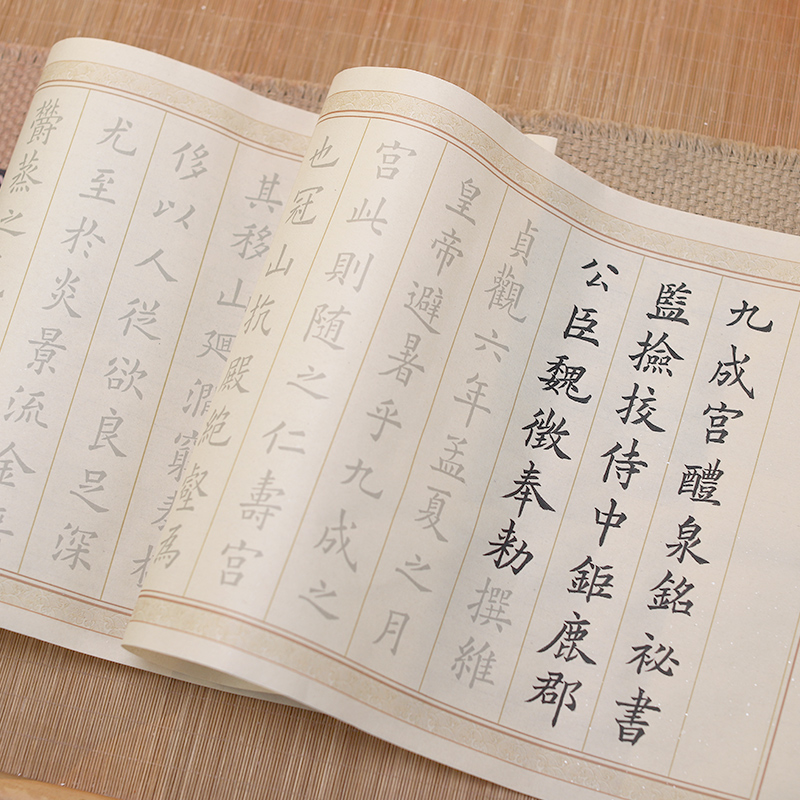 九成宮醴泉銘祕書
監撿挍侍中鉅鹿郡
公臣魏徵奉勑撰維
貞觀六年孟夏之月
皇帝避暑乎九成之
宮此則随之仁壽宮
也冠山抗殿絕壑為
其移山廻澗窮泰
侈以人從欲良足深
尤至於炎景流金無
鬱蒸之